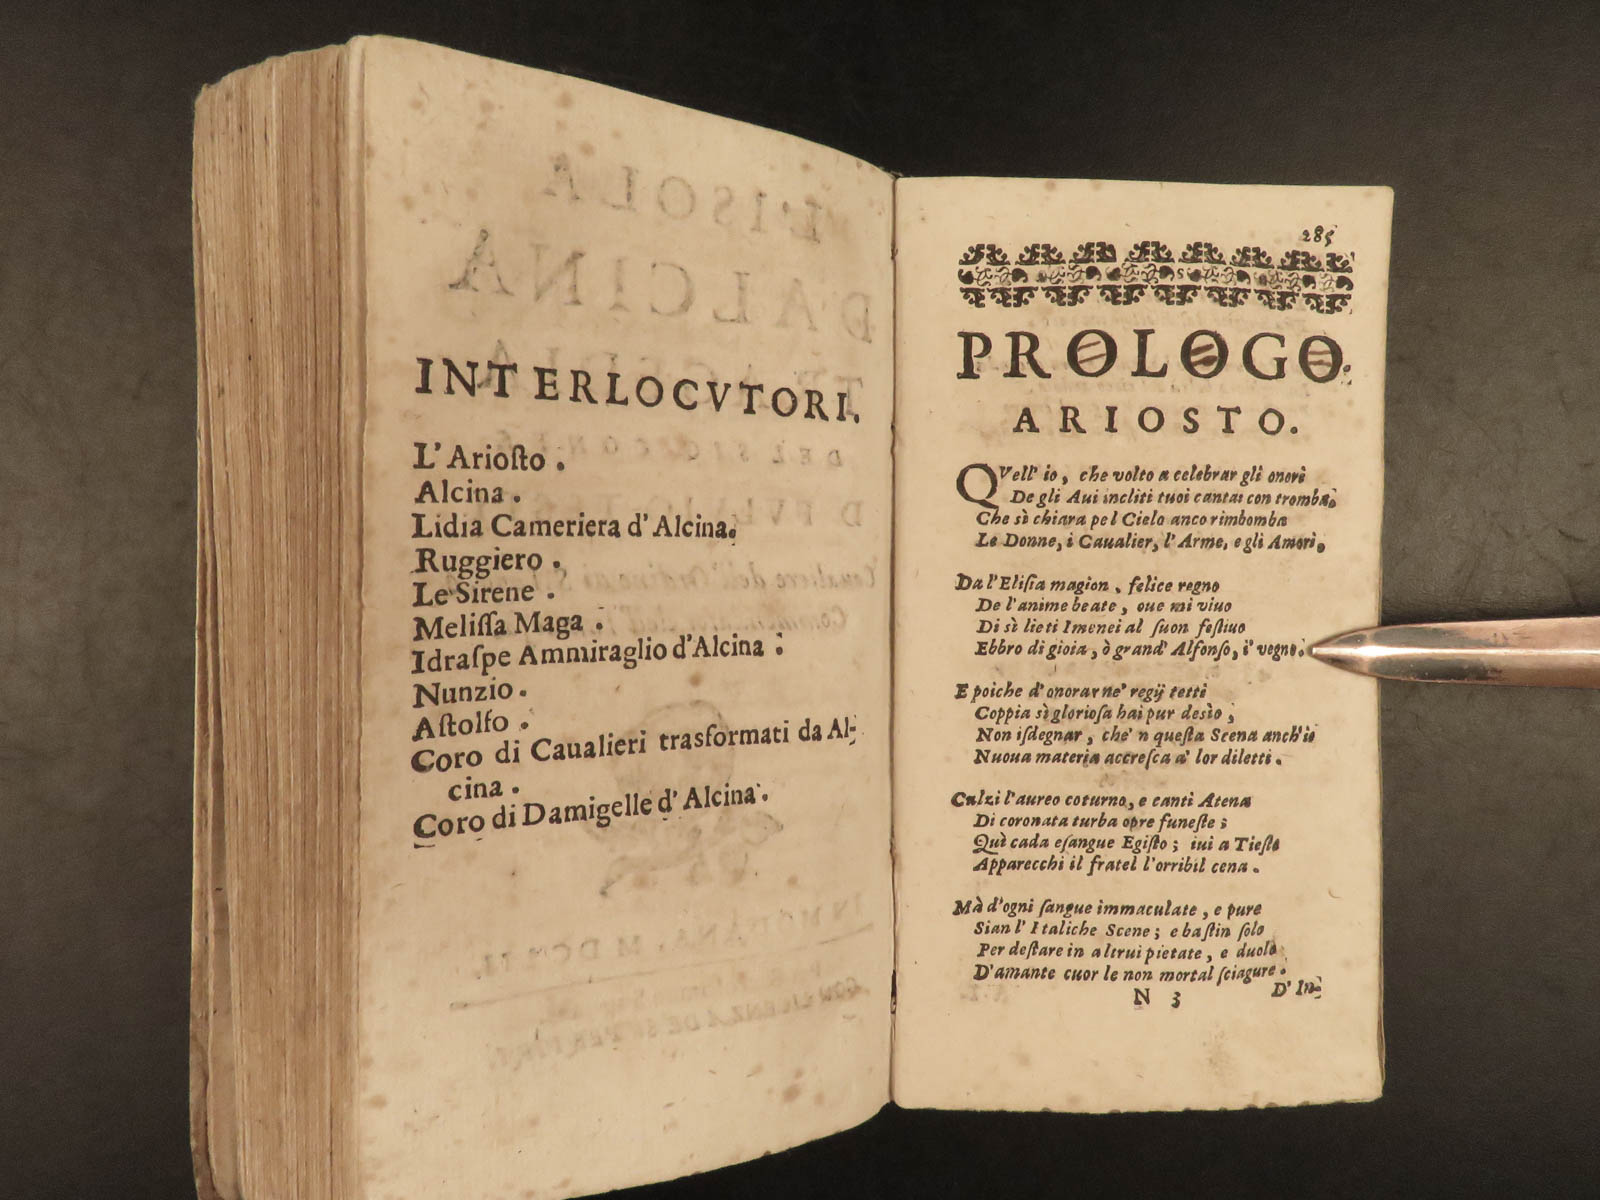 INTERLOCVTORI.
L'Arioſto.
Alcina.
Lidia Cameriera d'Alcina.
Ruggiero.
Le Sirene.
Meliſſa Maga.
Idraſpe Ammiraglio d'Alcina.
Nunzio.
Aſtolfo.
Coro di Caualieri trasformati da Al-
cina.
Coro di Damigelle d'Alcina.
285
PROLOGO.
ARIOSTO.
QVell' io, che volto a celebrar gli onori
De gli Aui incliti tuoi cantai con tromba,
Che sì chiara pel Cielo anco rimbomba
Le Donne, i Caualier, l'Arme, e gli Amori,
Da l'Eliſia magion, felice regno
De l'anime beate, oue mi viuo
Di sì lieti Imenei al ſuon feſtiuo
Ebbro di gioia, ò grand' Alfonſo, i' vegno.
E poiche d'onorar ne' regij tetti
Coppia sì glorioſa hai pur desìo,
Non iſdegnar, che'n queſta Scena anch'io
Nuoua materia accreſca a' lor diletti.
Calzi l'aureo coturno, e canti Atena
Di coronata turba opre funeſte;
Quì cada eſangue Egiſto; iui a Tieſte
Apparecchi il fratel l'orribil cena.
Mà d'ogni ſangue immaculate, e pure
Sian l'Italiche Scene; e baſtin ſolo
Per deſtare in altrui pietate, e duolo
D'amante cuor le non mortal ſciagure.
N 3
D'In-